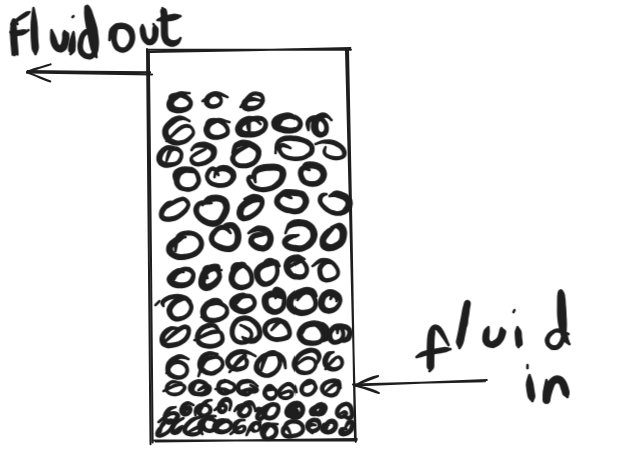 Fluid out
fluid
in